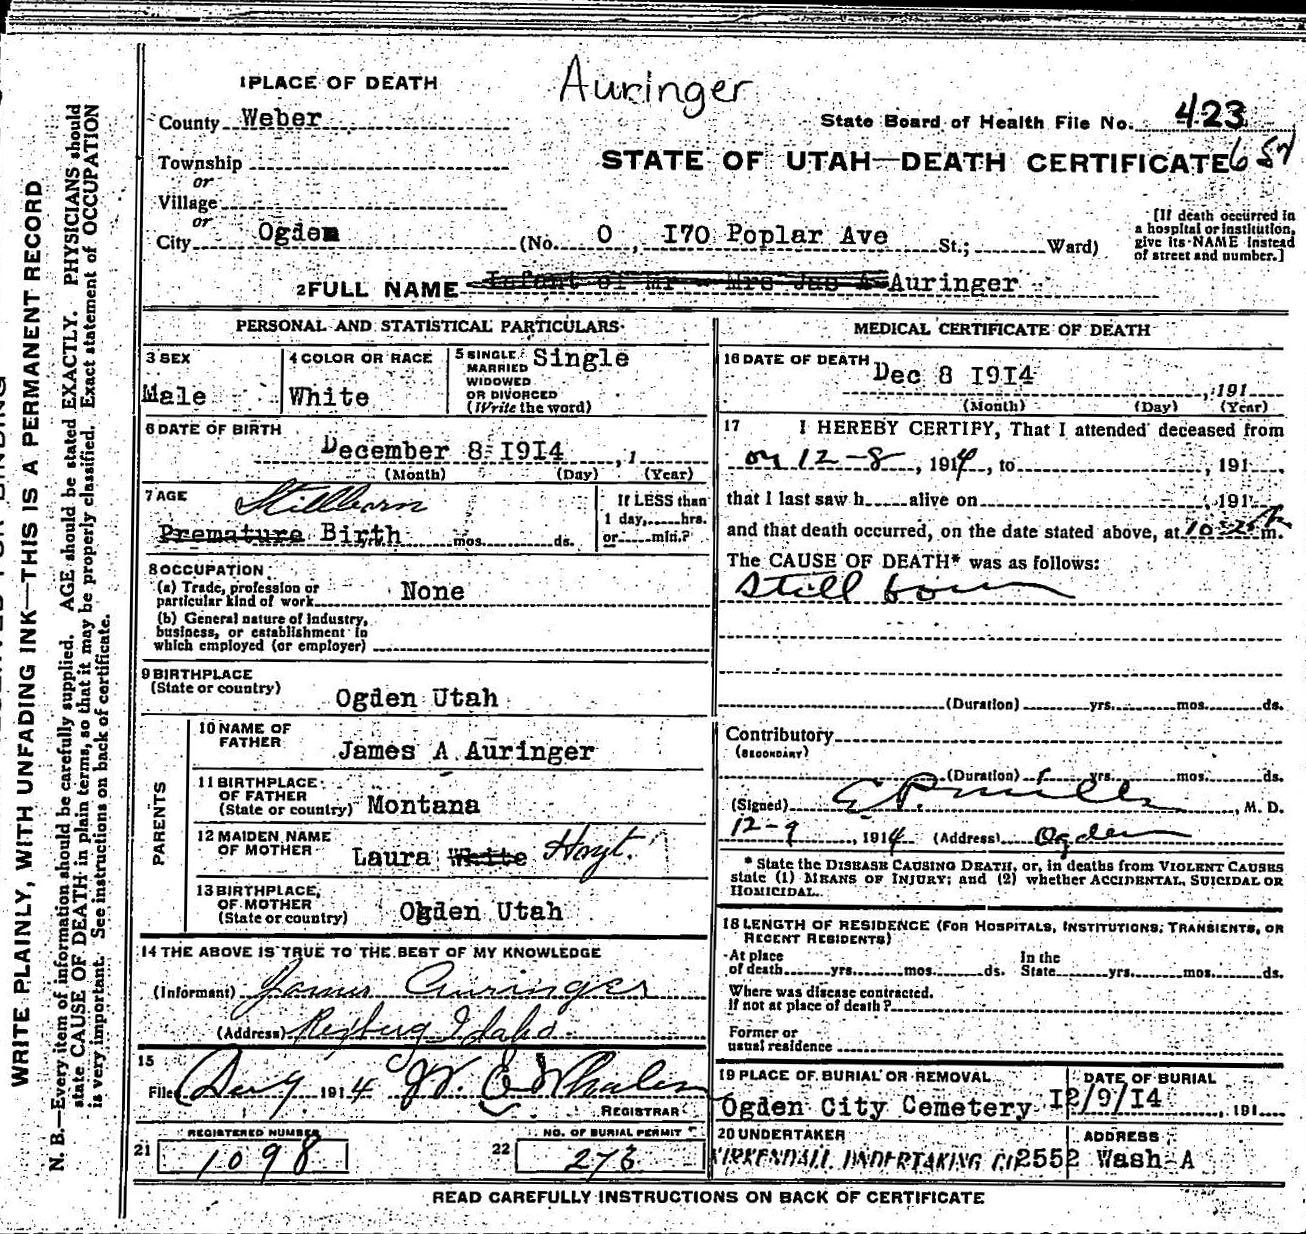 Auringer
1 PLACE OF DEATH
County Weber
State Board of Health File No. 423
Township
STATE OF UTAH—DEATH CERTIFICATE
or
Village
or
City Ogden (No. O, I70 Poplar Ave St.; Ward)
[If death occurred in
a hospital or institution,
give its NAME instead
of street and number.]
2 FULL NAME Infant of Mr Mrs Jas A Auringer
PERSONAL AND STATISTICAL PARTICULARS
3 SEX
Male
4 COLOR OR RACE
White
5 SINGLE Single
MARRIED
WIDOWED
OR DIVORCED
(Write the word)
6 DATE OF BIRTH
December 8 I9I4, 1
(Month) (Day) (Year)
7 AGE Stillborn
Premature Birth yrs. mos. ds.
If LESS than
1 day, hrs.
or min.?
8 OCCUPATION
(a) Trade, profession or
particular kind of work None
(b) General nature of industry,
business, or establishment in
which employed (or employer)
9 BIRTHPLACE
(State or country)
Ogden Utah
PARENTS
10 NAME OF
FATHER
James A Auringer
11 BIRTHPLACE
OF FATHER
(State or country) Montana
12 MAIDEN NAME
OF MOTHER Laura White Hoyt.
13 BIRTHPLACE
OF MOTHER
(State or country) Ogden Utah
14 THE ABOVE IS TRUE TO THE BEST OF MY KNOWLEDGE
(Informant) James Auringer
(Address) Rexburg Idaho
15
Filed Dec 9 1914 W. E. Whalen
REGISTRAR
REGISTERED NUMBER
21 1098
NO. OF BURIAL PERMIT
22 273
MEDICAL CERTIFICATE OF DEATH
16 DATE OF DEATH Dec 8 I9I4
, 191
(Month) (Day) (Year)
17 I HEREBY CERTIFY, That I attended deceased from
on 12-8, 1914, to , 191
that I last saw h alive on , 191
and that death occurred, on the date stated above, at m.
The CAUSE OF DEATH* was as follows:
Still born
(Duration) yrs. mos. ds.
Contributory
(SECONDARY)
(Duration) yrs. mos. ds.
(Signed) E P Mills, M. D.
12-9, 1914 (Address) Ogden
* State the DISEASE CAUSING DEATH, or, in deaths from VIOLENT CAUSES
state (1) MEANS OF INJURY; and (2) whether ACCIDENTAL, SUICIDAL OR
HOMICIDAL.
18 LENGTH OF RESIDENCE (FOR HOSPITALS, INSTITUTIONS, TRANSIENTS, OR
RECENT RESIDENTS)
At place
of death yrs. mos. ds.
In the
State yrs. mos. ds.
Where was disease contracted,
if not at place of death?
Former or
usual residence
19 PLACE OF BURIAL OR REMOVAL
Ogden City Cemetery
DATE OF BURIAL
I2/9/I4, 191
20 UNDERTAKER
KIRKENDALL UNDERTAKING CO
ADDRESS
2552 Wash-A
READ CAREFULLY INSTRUCTIONS ON BACK OF CERTIFICATE
WRITE PLAINLY, WITH UNFADING INK—THIS IS A PERMANENT RECORD
N. B.—Every item of information should be carefully supplied. AGE should be stated EXACTLY. PHYSICIANS should
state CAUSE OF DEATH in plain terms, so that it may be properly classified. Exact statement of OCCUPATION
is very important. See instructions on back of certificate.